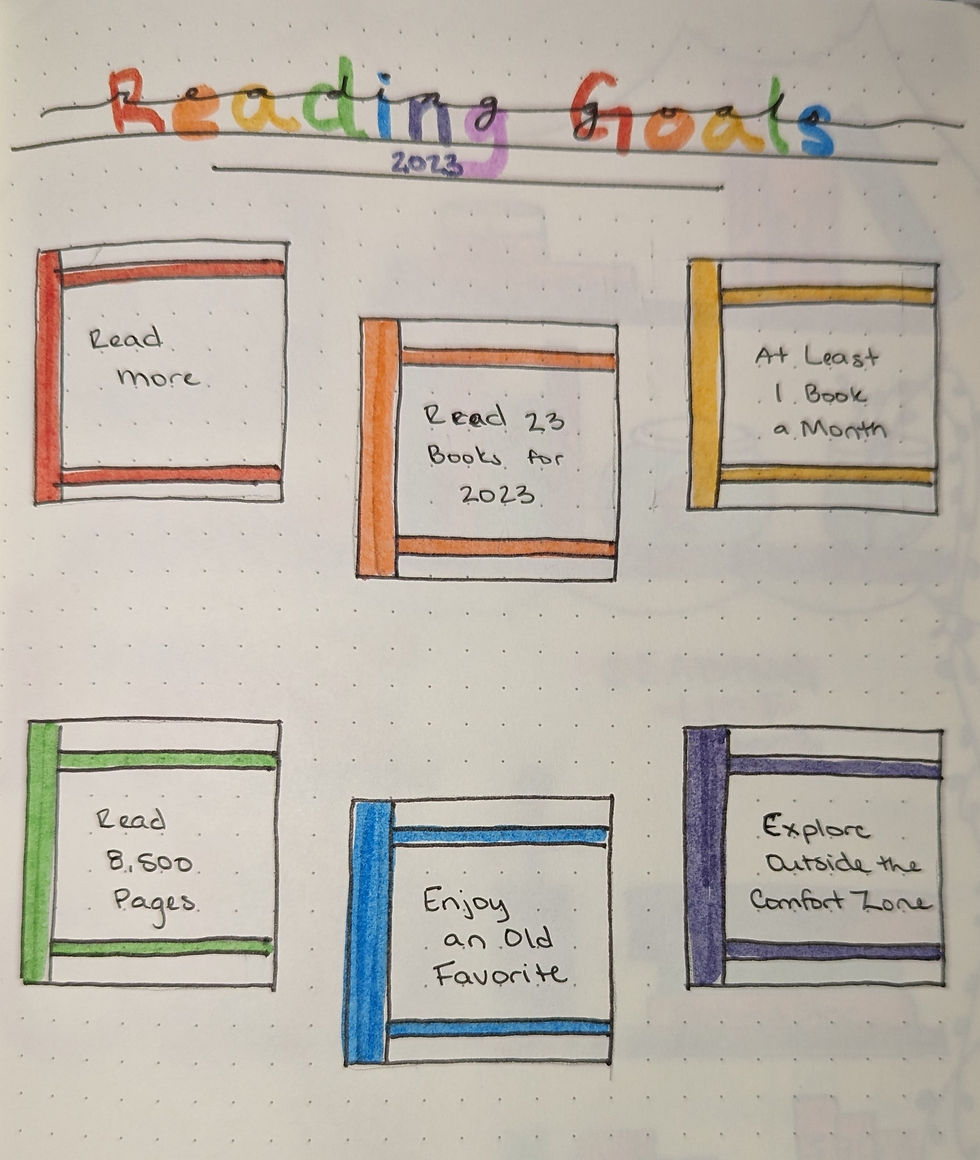 Reading Goals
reading goals
2023
Read
more
Read 23
Books for
2023
At Least
1 Book
a Month
Read
8,500
Pages
Enjoy
an Old
Favorite
Explore
Outside the
Comfort Zone